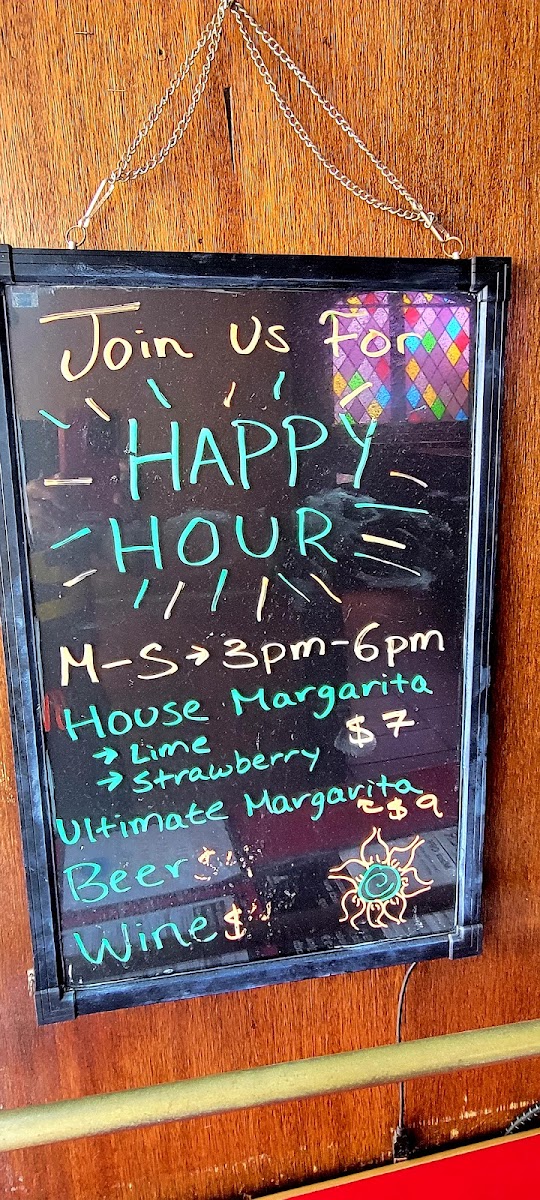 Join us For
HAPPY
HOUR
M-S→3pm-6pm
House Margarita
→ Lime $7
→ Strawberry
Ultimate Margarita
~$9
Beer $
Wine $